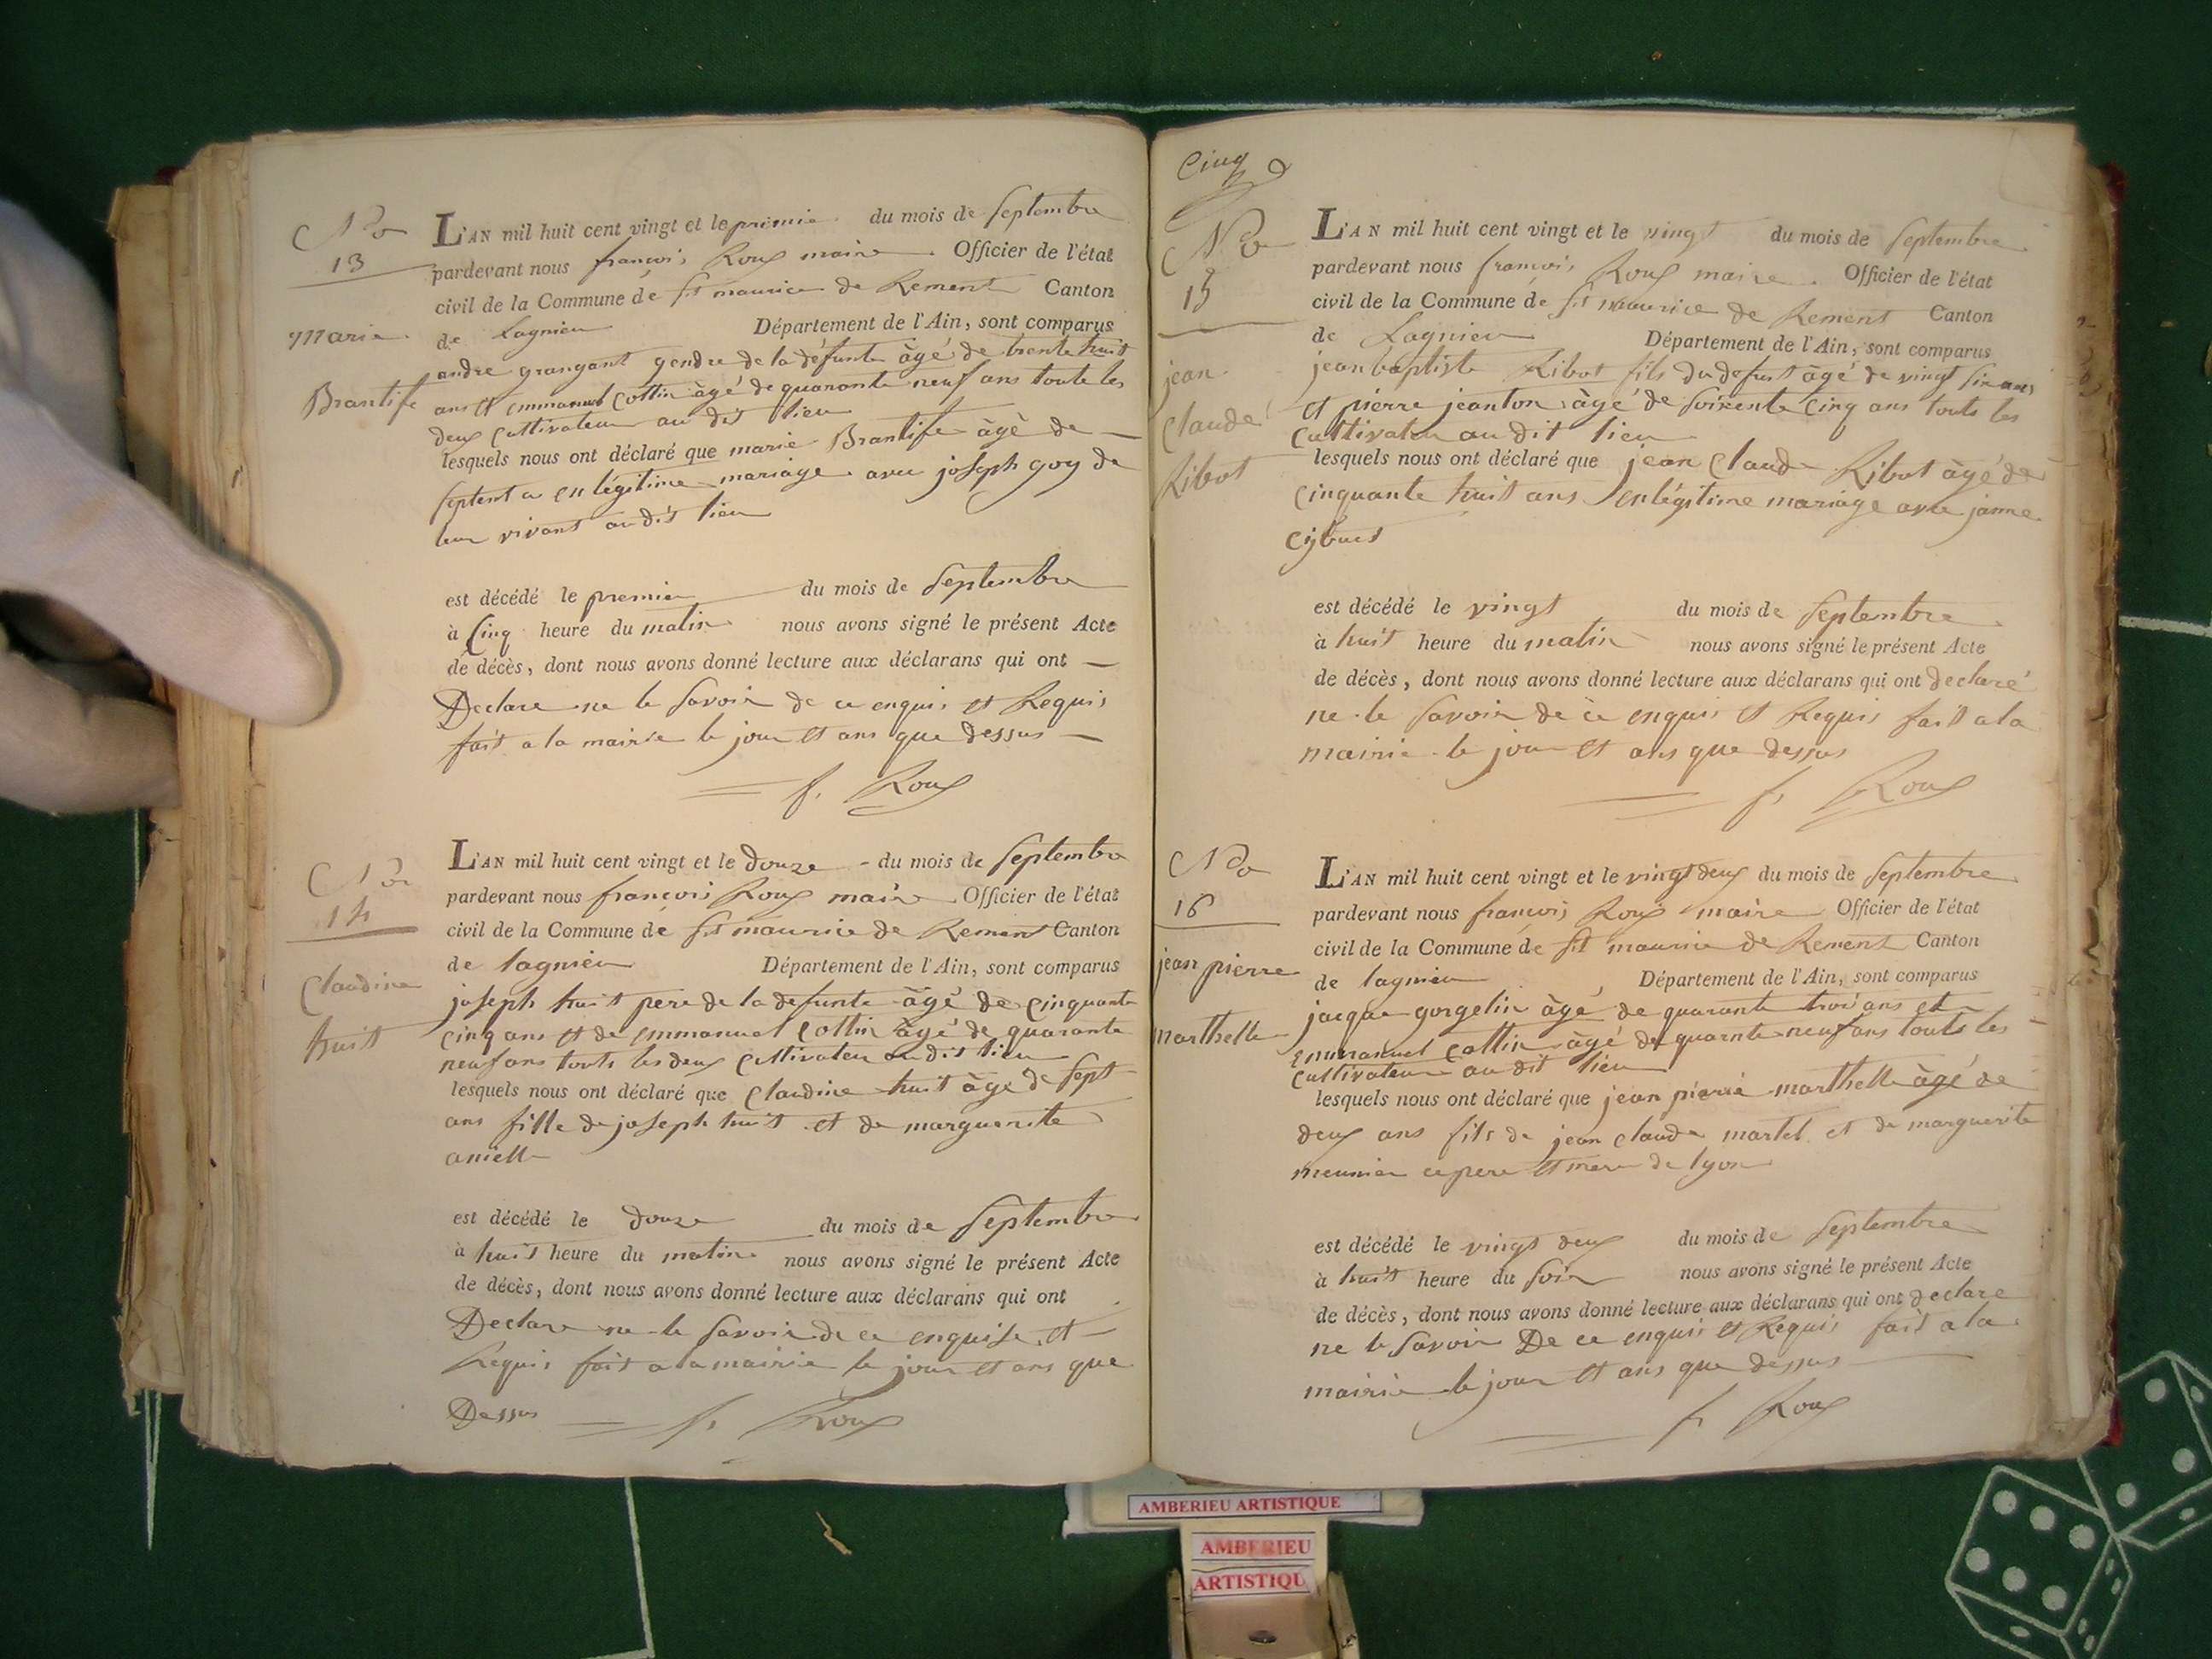 No
13
Marie
Brantife
L'AN mil huit cent vingt et le premie du mois de Septembre
pardevant nous françois Roux maire Officier de l'état
civil de la Commune de st maurice de Rement Canton
de Lagnieu Département de l'Ain, sont comparus
andre grangant gendre de la défunte âgé de trente huit
ans et emmanuel Cottin âgé de quarante neuf ans toute les
deux Cultivateur au dit lieu
lesquels nous ont déclaré que marie Brantife âgè de
septent a en légitime mariage avec joseph goy de
leur vivant au dit lieu
est décédé le premier du mois de Septembre
à Cinq heure du matin nous avons signé le présent Acte
de décès, dont nous avons donné lecture aux déclarans qui ont
Declare ne le Savoir de ce enquis et Requis
fait a la mairie le jour et ans que dessus
f. Roux
No
14
Claudine
huit
L'AN mil huit cent vingt et le douze du mois de Septembre
pardevant nous françois Roux maire Officier de l'état
civil de la Commune de st maurice de Rement Canton
de lagnieu Département de l'Ain, sont comparus
joseph huit pere de la defunte âgé de cinquante
cinq ans et de emmanuel Cottin âgé de quarante
neuf ans touts les deux Cultivateur au dit lieu
lesquels nous ont déclaré que Claudine huit âge de Sept
ans fille de joseph huit et de marguerite
aniell
est décédé le douze du mois de Septembre
à huit heure du matin nous avons signé le présent Acte
de décès, dont nous avons donné lecture aux déclarans qui ont
Declare ne le Savoir de ce enquise et
Requis fait a la mairie le jour et ans que
Dessus f. Roux
Cinq
No
15
jean
Claude
Ribot
L'AN mil huit cent vingt et le vingt du mois de Septembre
pardevant nous françois Roux maire Officier de l'état
civil de la Commune de st maurice de Rement Canton
de Lagnieu Département de l'Ain, sont comparus
jean baptiste Ribot fils du defust âgé de vingt six ans
et pierre jeanton âgé de soixente cinq ans touts les
Cultivateur au dit lieu
lesquels nous ont déclaré que jean Claude Ribot âgé de
cinquante huit ans en légitime mariage avec janne
est décédé le vingt du mois de Septembre
à huit heure du matin nous avons signé le présent Acte
de décès, dont nous avons donné lecture aux déclarans qui ont declaré
ne le Savoir de ce enquis et Requis fait a la
mairie le jour et ans que dessus
f. Roux
No
16
jean pierre
marthelle
L'AN mil huit cent vingt et le vingt deux du mois de Septembre
pardevant nous françois Roux maire Officier de l'état
civil de la Commune de st maurice de Rement Canton
de lagnieu Département de l'Ain, sont comparus
jacque gorgelin âgé de quarante trois ans et
Emmanuel Cottin âgé de quarnte neuf ans touts les
Cultivateur au dit lieu
lesquels nous ont déclaré que jean pierre marthelle âgé de
deux ans fils de jean Claude martel et de marguerite
meunier ce pere et mere de lyon
est décédé le vingt deux du mois de Septembre
à huit heure du Soir nous avons signé le présent Acte
de décès, dont nous avons donné lecture aux déclarans qui ont declare
ne le Savoir De ce enquis et Requis fait a la
mairie le jour et ans que dessus
f. Roux
AMBERIEU ARTISTIQUE
AMBERIEU
ARTISTIQU